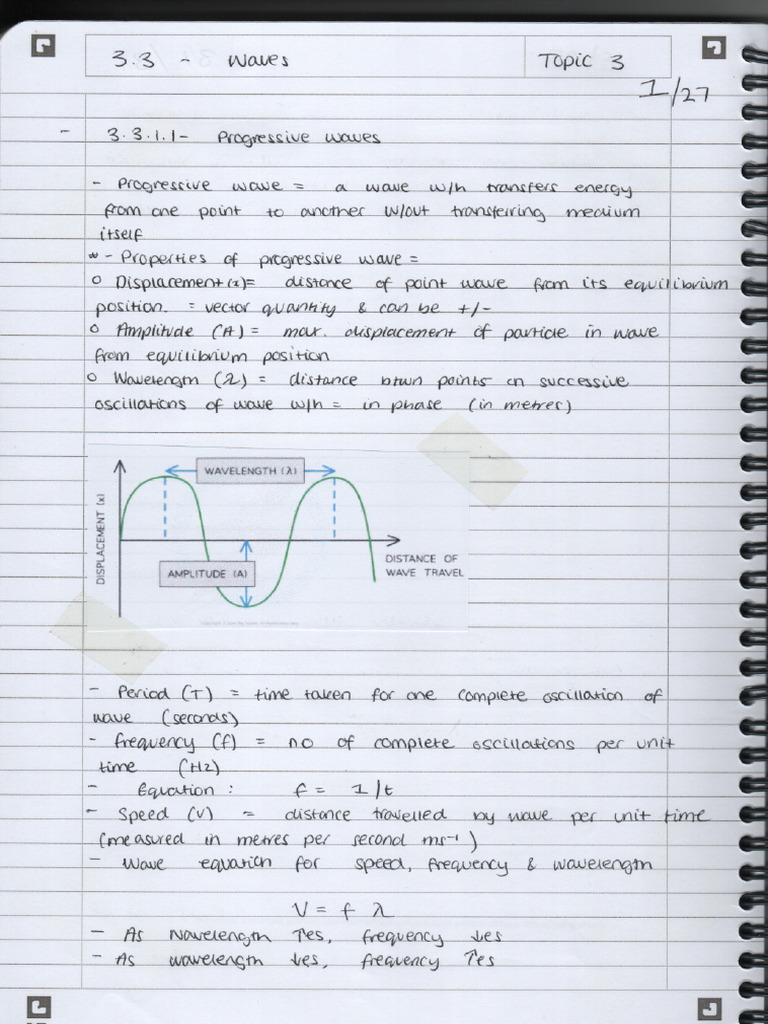 3.3 - Waves
Topic 3
1/27
- 3.3.1.1 - Progressive waves
- Progressive wave = a wave w/h transfers energy
from one point to another w/out transferring medium
itself
- Properties of progressive wave =
o Displacement (x) = distance of point wave from its equilibrium
position. = vector quantity & can be +/-
o Amplitude (A) = max. displacement of particle in wave
from equilibrium position
o Wavelength (λ) = distance btwn points on successive
oscillations of wave w/h = in phase (in metres)
WAVELENGTH (λ)
DISPLACEMENT (x)
AMPLITUDE (A)
DISTANCE OF
WAVE TRAVEL
- Period (T) = time taken for one complete oscillation of
wave (seconds)
- frequency (f) = no of complete oscillations per unit
time (Hz)
- Equation : f = 1/t
- Speed (v) = distance travelled by wave per unit time
(measured in metres per second ms⁻¹)
- Wave equation for speed, frequency & wavelength
V = f λ
- As wavelength ↑es, frequency ↓es
- As wavelength ↓es, frequency ↑es